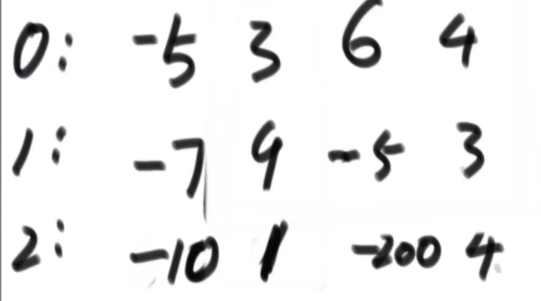 0: -5 3 6 4
1: -7 9 -5 3
2: -10 1 -200 4